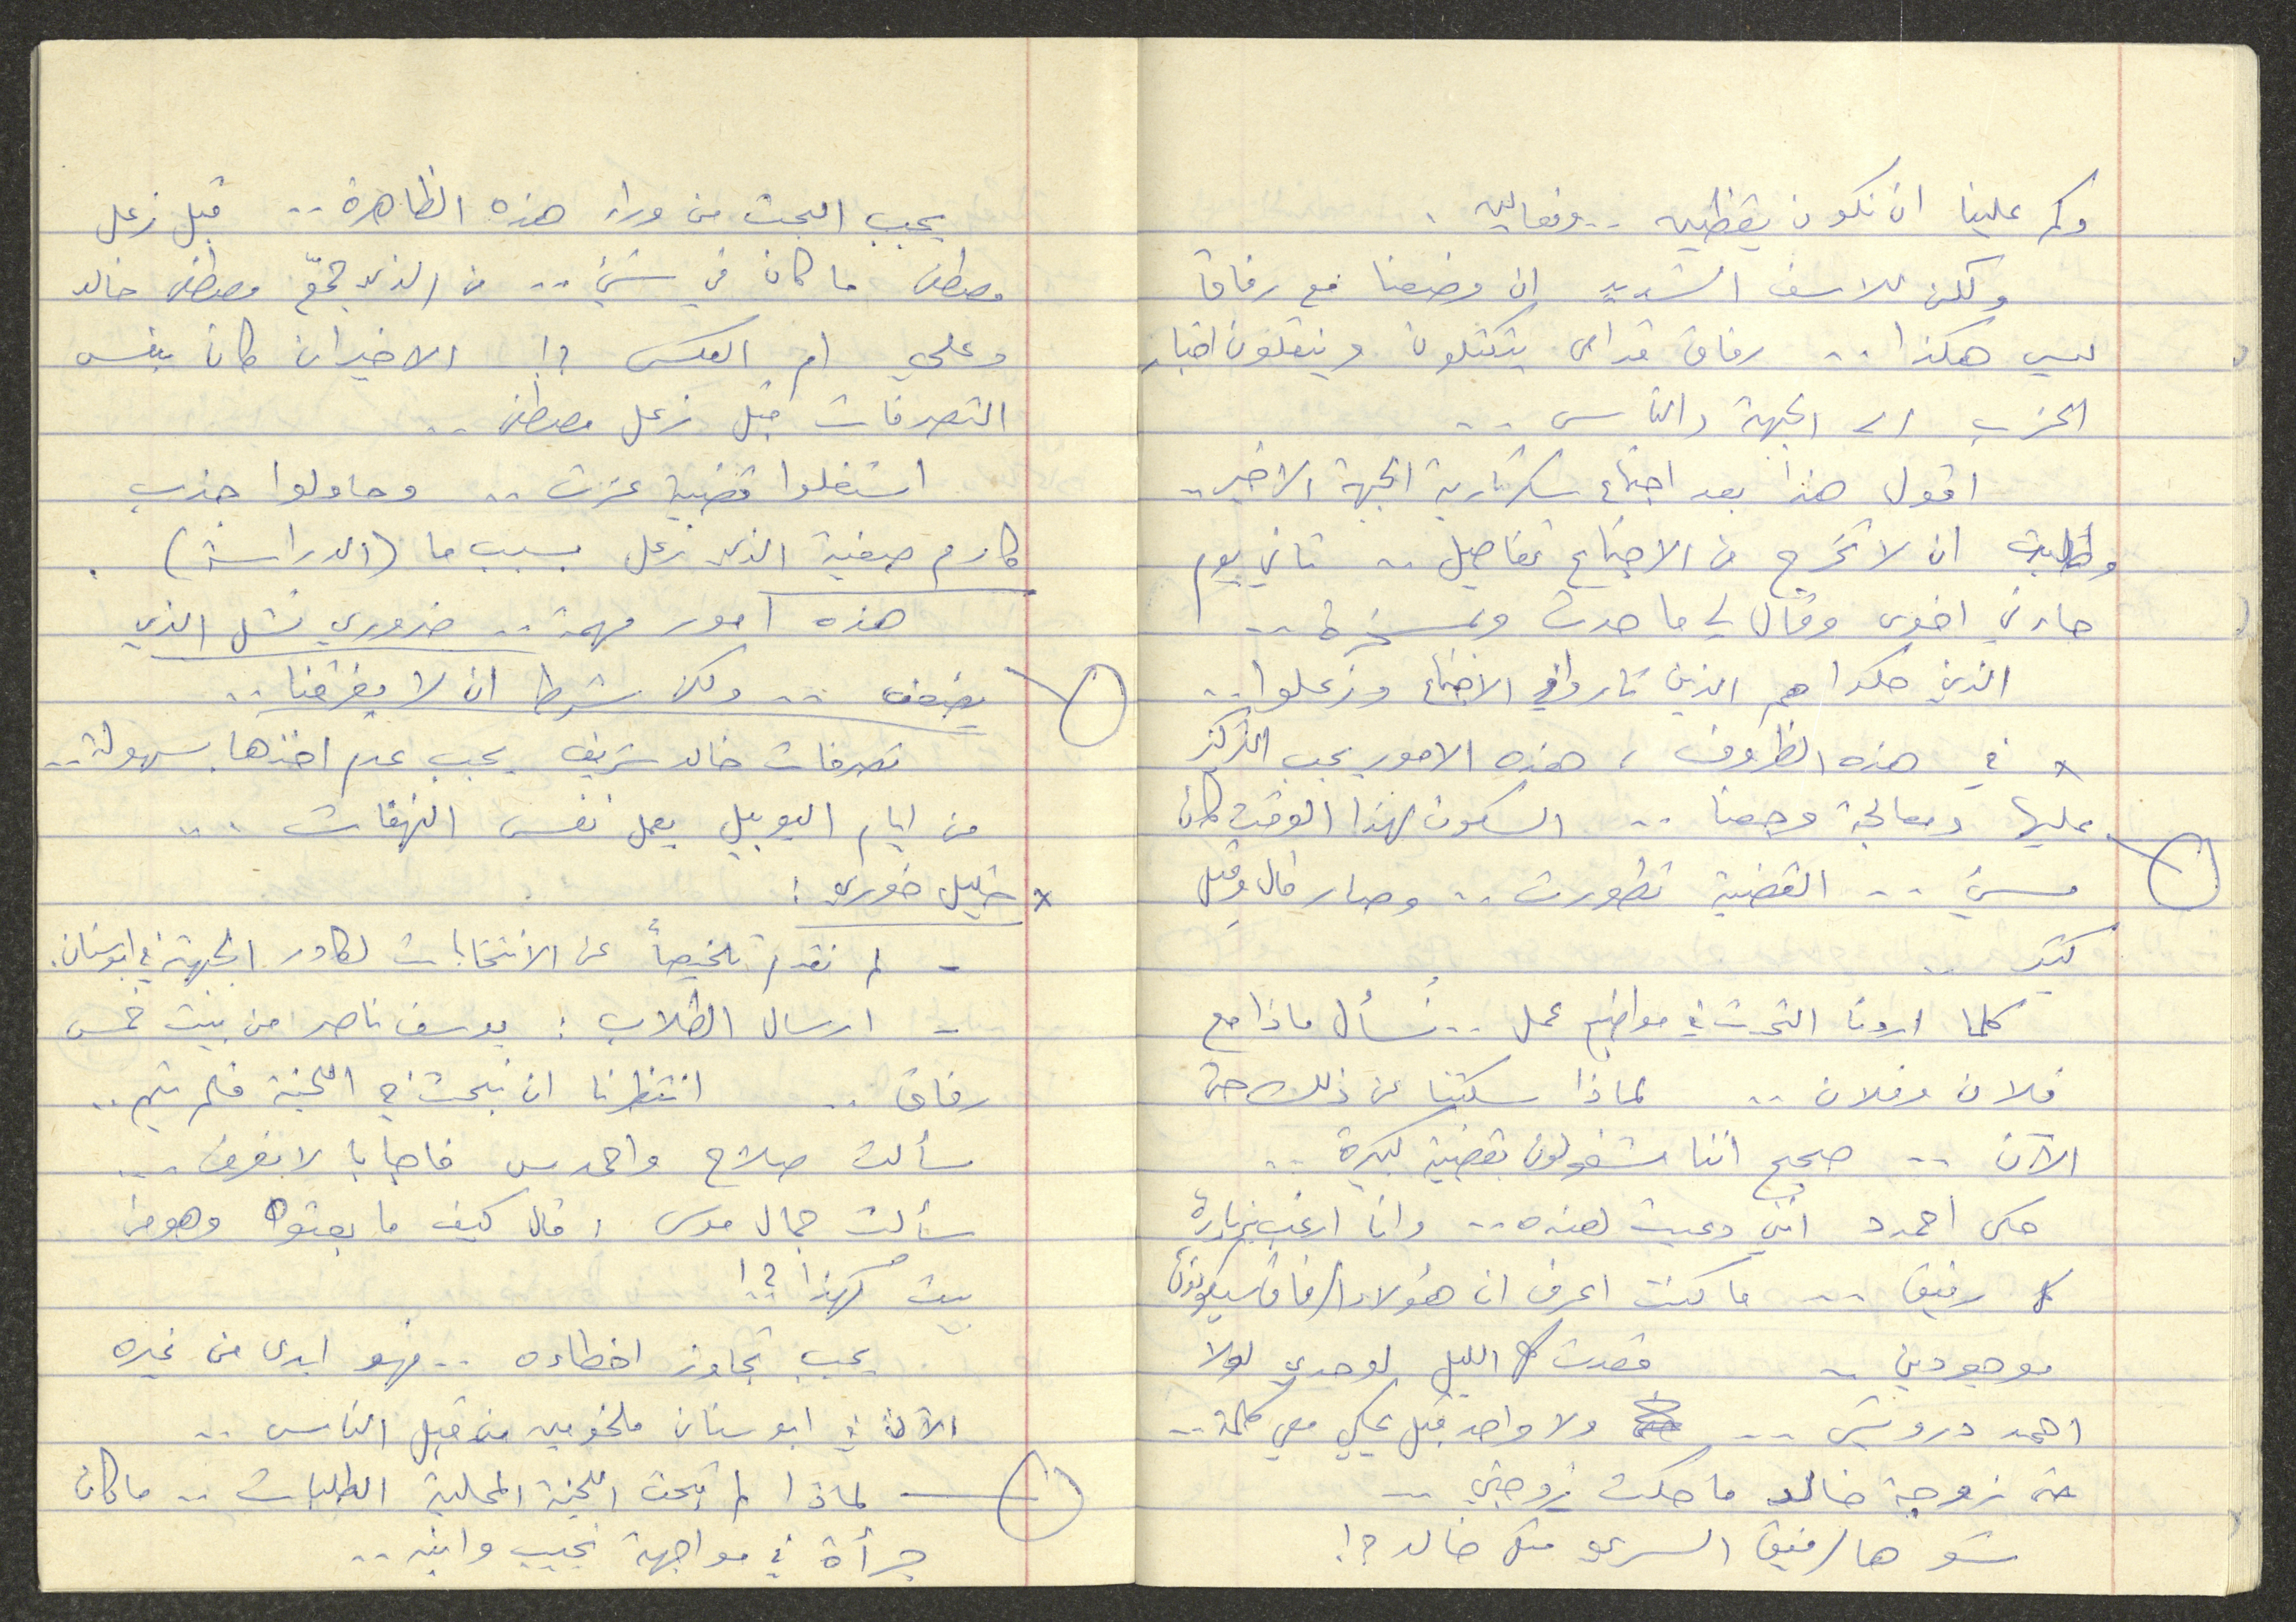 وكم علينا ان نكون يقظين .. وفعالين .
ولكن للاسف الشديد ان وضعنا مع رفاق
ليس هكذا .. رفاق قدامى يتكتلون وينقلون اخبار
الحزب الى الجبهة والناس ..
اقول هذا بعد اجتماع سكرتارية الجبهة الاخير ..
وطلبت ان لا تخرج من الاجتماع تفاصيل .. تاني يوم
جاءني اخوي وقال لي ما حدث
الذين حكوا هم الذين ثاروا في الاجتماع وزعلوا ..
* في هذه الظروف ، هذه الامور يجب التركيز
عليها ومعالجة وضعنا .. السكوت لهذا الوقت كان
مسيء .. القضية تطورت .. وصار قال وقيل
كتير ..
كلما اردنا التحدث في مواضيع عمل .. نُسأل ماذا مع
فلان وفلان .. لماذا سكتنا عن ذلك حتى
الآن .. صحيح اننا مشغولون بقضية كبيرة ..
حكى احمد د انني دعيت لعنده .. وانا ارغب بزيارة
كل رفيق .. ما كنت اعرف ان هؤلاء الرفاق سيكونون
موجودين .. قعدت كل الليل لوحدي لولا
احمد درويش .. ولا واحد قبل يحكي معي كلمة ..
حتى زوجة خالد ما حكت زوجتي ..
شو هالرفيق السري مثل خالد ؟!
يجب البحث من وراء هذه الظاهرة .. قبل زعل
مصطفى ما كان في شيء .. من الذي جمّع مصطفى خالد
وعلي ام العكس ؟! الاخيران كان بنفس
التصرفات قبل زعل مصطفى ..
استغلوا قضية عزت .. وحاولوا جذب
كارم صفية الذي زعل بسبب ما (الدراسة) .
هذه امور مهمة .. ضروري نشل الذي
يضعف .. ولكن شرط ان لا يغرقنا ..
تصرفات خالد شريف يجب عدم اخذها بسهولة ..
من ايام اليوبيل يعمل نفس النهفات ..
* خليل خوري :
- لم نقدم تلخيصاً عن الانتخابات لكادر الجبهة في ابو سنان .
- ارسال الطلاب : يوسف ناصر من بيت خمس
رفاق .. انتظرنا ان نبحث في اللجنة فلم يتم ..
سألت صلاح واحمد س فاجابا لا نعرف ..
سألت جمال موسى ، قال كيف ما بعتوه وهو من
بيت كهذا ؟!
يجب تجاوز اخطاءه .. فهو ابدى من غيره
الآن في ابو سنان ملخومين من قبل الناس ..
لماذا لم تبحث اللجنة المحلية الطلبات .. ما كان
جرأة في مواجهة نجيب وابنه ..